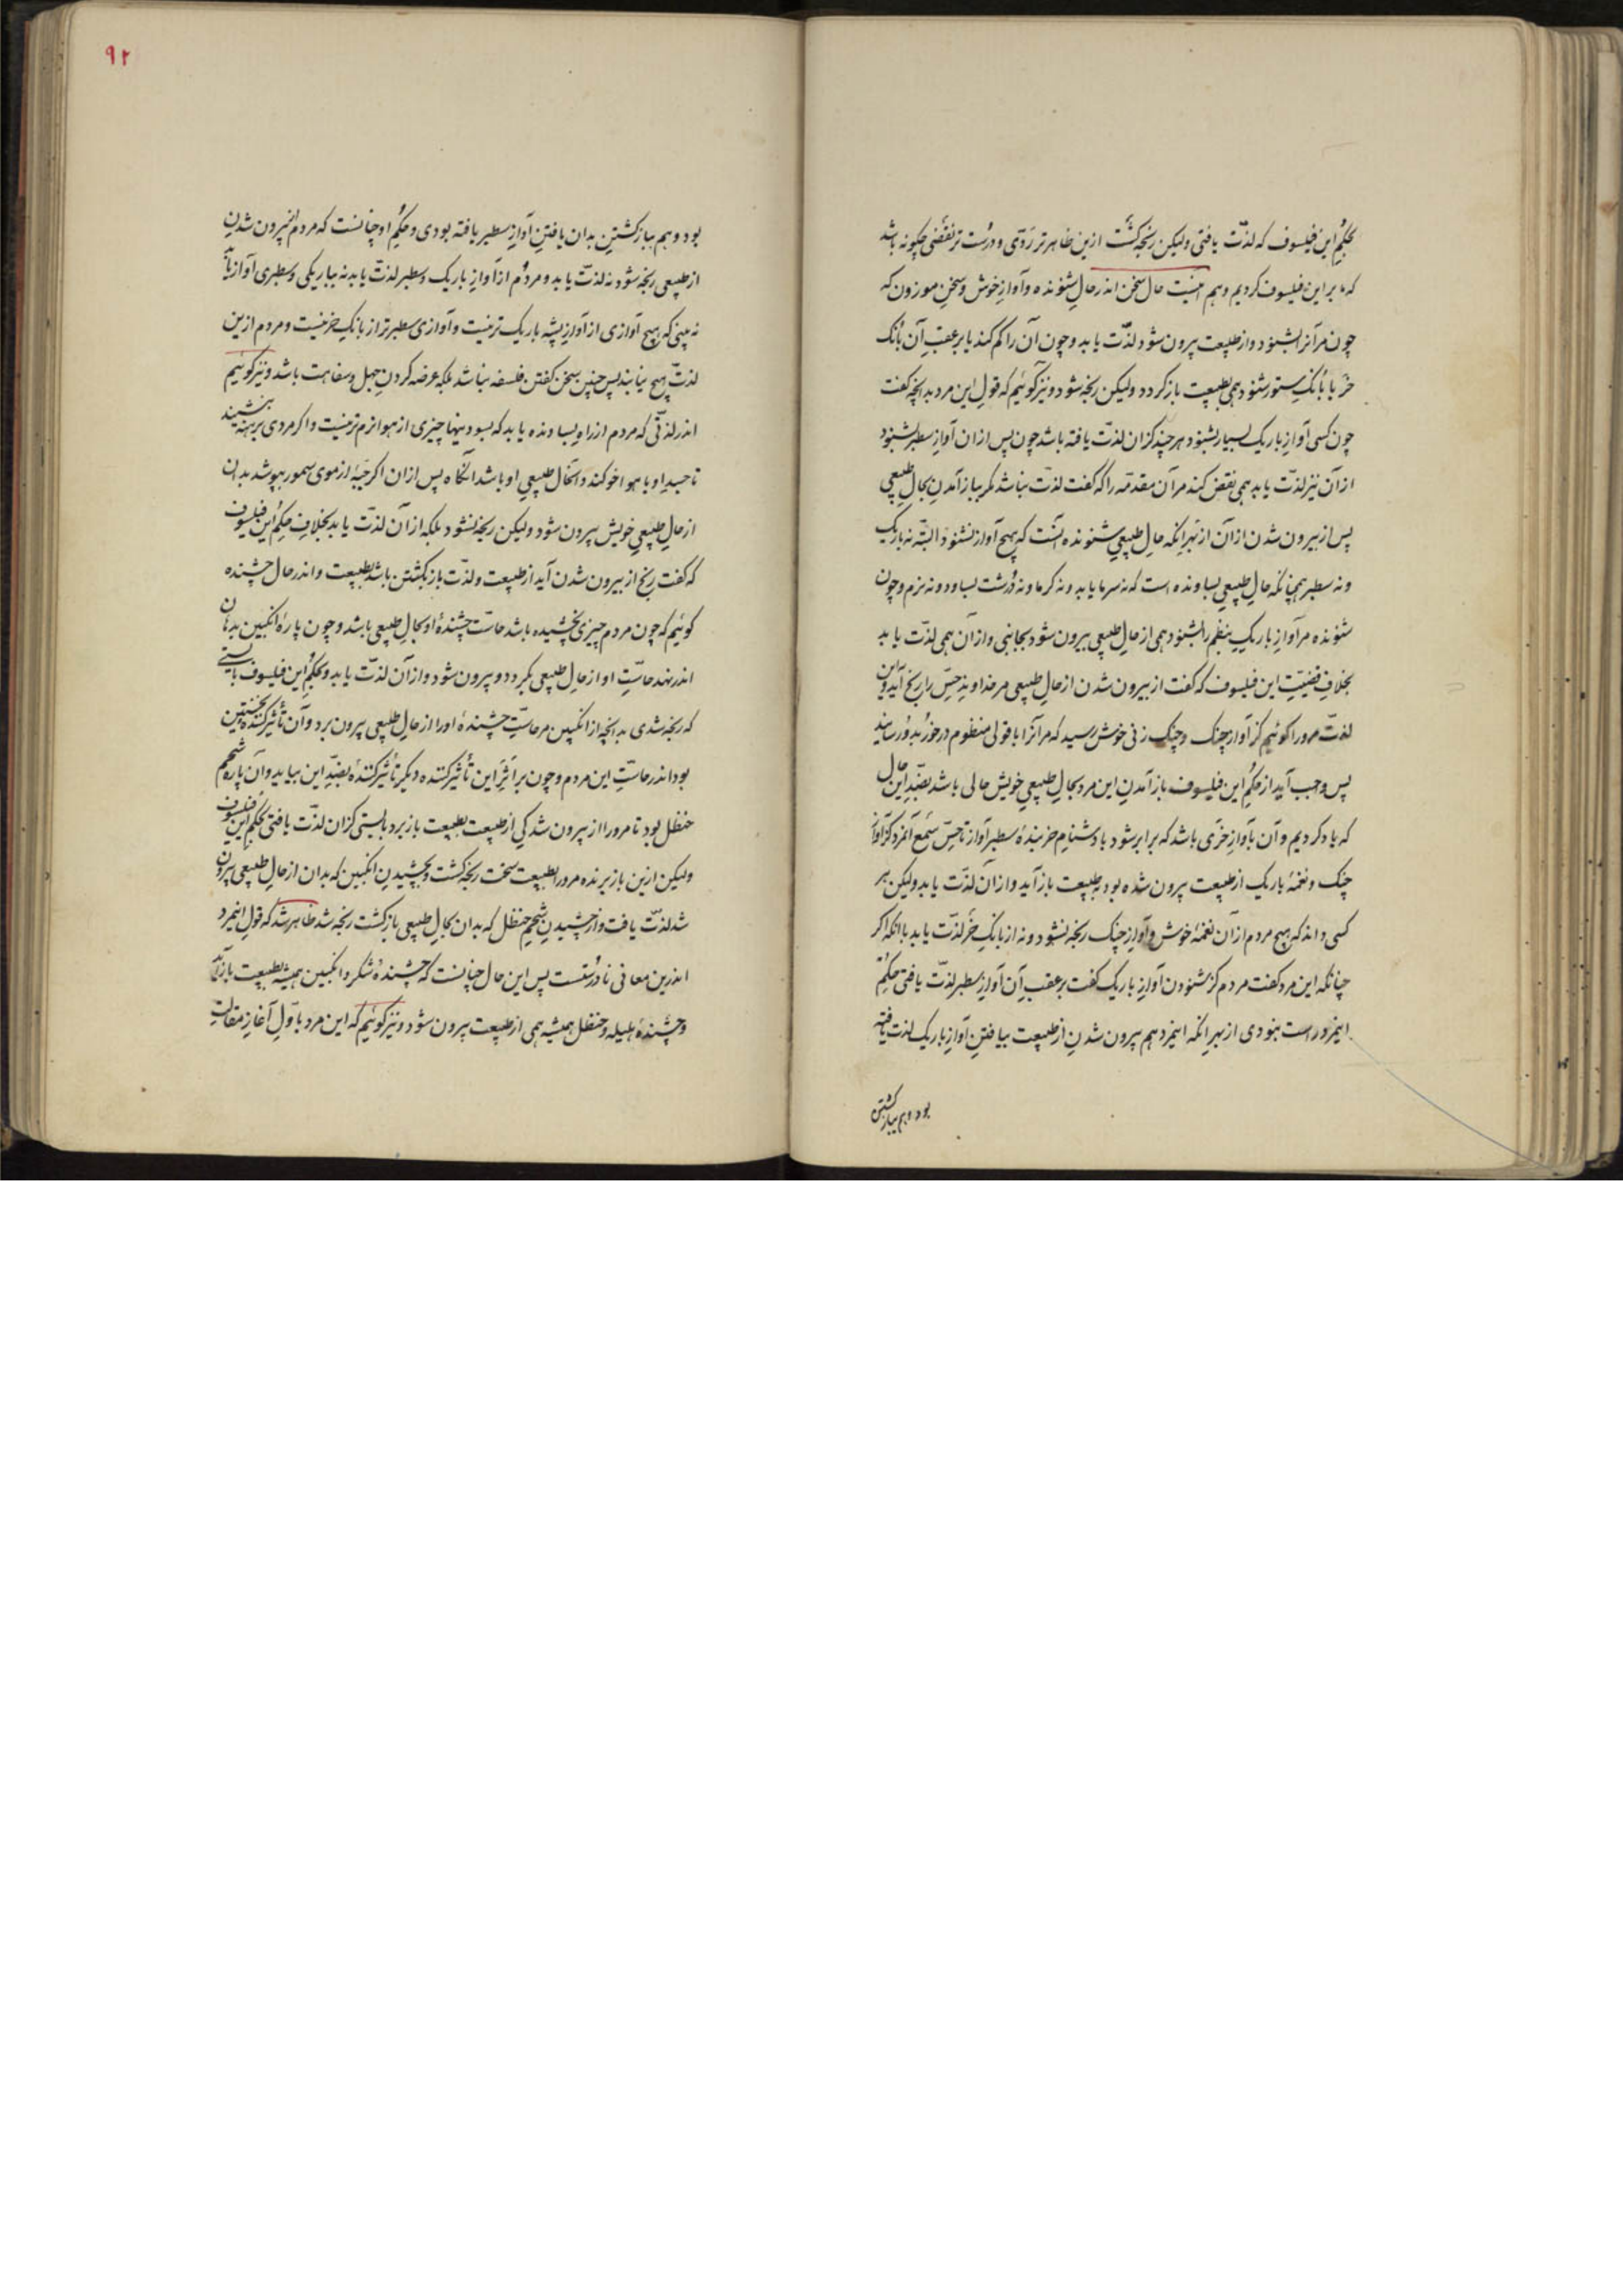 بحکم این فیلسوف که لذّت یافتی ولیکن رنجه گشت ازین ظاهرتر ردّی و درست‌تر نقضی چگونه باشد
که ما بر این فیلسوف کردیم و هم اینست حال سخن اندر حالِ شنونده و آوازِ خوش و سخنِ موزون که
چون مر آنرا بشنود و از طبیعت بیرون شود لذّت یابد و چون آن را گم کند یا بر عقبِ آن بانگ
خر یا بانگِ ستور شنود همی بطبیعت باز گردد ولیکن رنجه شود و نیز گوئیم که قولِ این مرد بدانچه گفت
چون کسی آوازِ باریک بسیار بشنود هر چند کزان لذّت یافته باشد چون پس ازان آوازِ سطبر بشنود
از آن نیز لذّت یابد همی نقض کند مر آن مقدّمه را که گفت لذّت نباشد مگر بباز آمدنِ بحالِ طبیعی
پس از بیرون شدن ازان از بهرِ انکه حالِ طبیعیِ شنونده آنست که هیچ آواز نشنود البتّه نه باریک
و نه سطبر همچنانکه حالِ طبیعیِ بساونده است که نه سرما یابد و نه گرما و نه دُرشت بساود و نه نرم و چون
شنونده مر آوازِ باریکِ بنظم را بشنود همی از حالِ طبیعی بیرون شود بجانبی و از آن همی لذّت یابد
بخلافِ قضیّتِ این فیلسوف که گفت از بیرون شدن از حالِ طبیعی مر خداوندِ حِسّ را رنج آید و این
لذّت مرورا گوئیم کز آوازِ چنگ و چنگ زنی خوش رسید که مر آنرا با قولی منظوم درخور بدو رسانید
پس واجب آید از حکمِ این فیلسوف باز آمدنِ این مرد بحالِ طبیعیِ خویش حالی باشد بضدِّ این حال
که یاد کردیم و آن بآوازِ خری باشد که برابر شود با دشنامِ خربندهٔ سطبر آواز تا حِسِّ سمعِ آنمرد کز آوازِ
چنگ و نغمهٔ باریک از طبیعت بیرون شده بود بطبیعت باز آید و ازان لذّت یابد ولیکن هر
کسی داند که هیچ مردم از آن نغمهٔ خوش و آوازِ چنگ رنجه نشود و نه از بانگِ خر لذّت یابد با انکه اگر
چنانکه این مرد گفت مردم کز شنودن آوازِ باریک گفت بر عقبِ آن آوازِ سطبر لذّت یافتی حکمِ
اینمرد راست نبودی از بهرِ انکه اینمرد هم بیرون شدنِ از طبیعت بیافتنِ آوازِ باریک لذت یافته
بود و هم بباز گشتن
۹۲
بود و هم بباز گشتنِ بدان یافتنِ آوازِ سطبر یافته بودی و حکمِ او چنانست که مردم از بیرون شدنِ
از طبیعی رنجه شود نه لذّت یابد و مردُم از آوازِ باریک و سطبر لذّت یابد نه بباریکی و سطبری آواز
نه بینی که هیچ آوازی از آوازِ پشه باریک‌تر نیست و آوازی سطبرتر از بانگِ خر نیست و مردم ازین
لذّت هیچ نیابند پس چنین سخن گفتن فلسفه نباشد بلکه عرضه کردنِ جهل و سفاهت باشد و نیز گوئیم
اندر لذّتی که مردم از راهِ بساونده یابد که بسودنیها چیزی از هوا نرم‌تر نیست و اگر مردی برهنه بنشیند
تا جسدِ او با هوا خو کند و آنحال طبیعیِ او باشد آنگاه پس ازان اگر جبّهٔ از موی سمور بپوشد بدان
از حالِ طبیعیِ خویش بیرون شود ولیکن رنجه نشود بلکه از آن لذّت یابد بخلافِ حکمِ این فیلسوف
که گفت رنج از بیرون شدن آید از طبیعت و لذّت باز گشتن باشد بطبیعت و اندر حال چشنده
گوئیم که چون مردم چیزی نچشیده باشد حاسّت چشندهٔ او بحالِ طبیعی باشد و چون پارهٔ انگبین بدهان
اندر نهد حاسّتِ او از حالِ طبیعی بگردد و بیرون شود و از آن لذّت یابد و بحکمِ این فیلسوف بایستی
که رنجه شدی بدانچه از انگبین مر حاسّتِ چشندهٔ او را از حالِ طبیعی بیرون برد و آن تأثیر کنندهٔ نخستین
بود اندر حاسّتِ این مردم و چون بر اثرِ این تأثیر کننده دیگر تأثیر کنندهٔ بضدِّ این بیاید و آن پارهٔ شحم
حنظل بود تا مرورا از بیرون شدگی از طبیعت بطبیعت باز برد بایستی کزان لذّت یافتی بحکمِ این فیلسوف
ولیکن ازین باز برنده مرورا بطبیعت سخت رنجه گشت و بچشیدنِ انگبین که بدان از حالِ طبیعی بیرون
شد لذّت یافت و از چشیدنِ شحمِ حنظل که بدان بحالِ طبیعی باز گشت رنجه شد ظاهر شد که قولِ اینمرد
اندرین معانی نادرستست پس این حال چنانست که چشندهٔ شکر و انگبین همیشه بطبیعت باز آید
و چشندهٔ هلیله و حنظل همیشه همی از طبیعت بیرون شود و نیز گوئیم که این مرد باوّلِ آغازِ مقالتِ